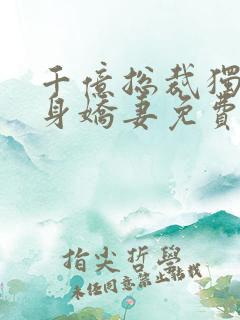 千億總裁獨
身嬌妻免費
指尖哲學
未任同意禁止轉載